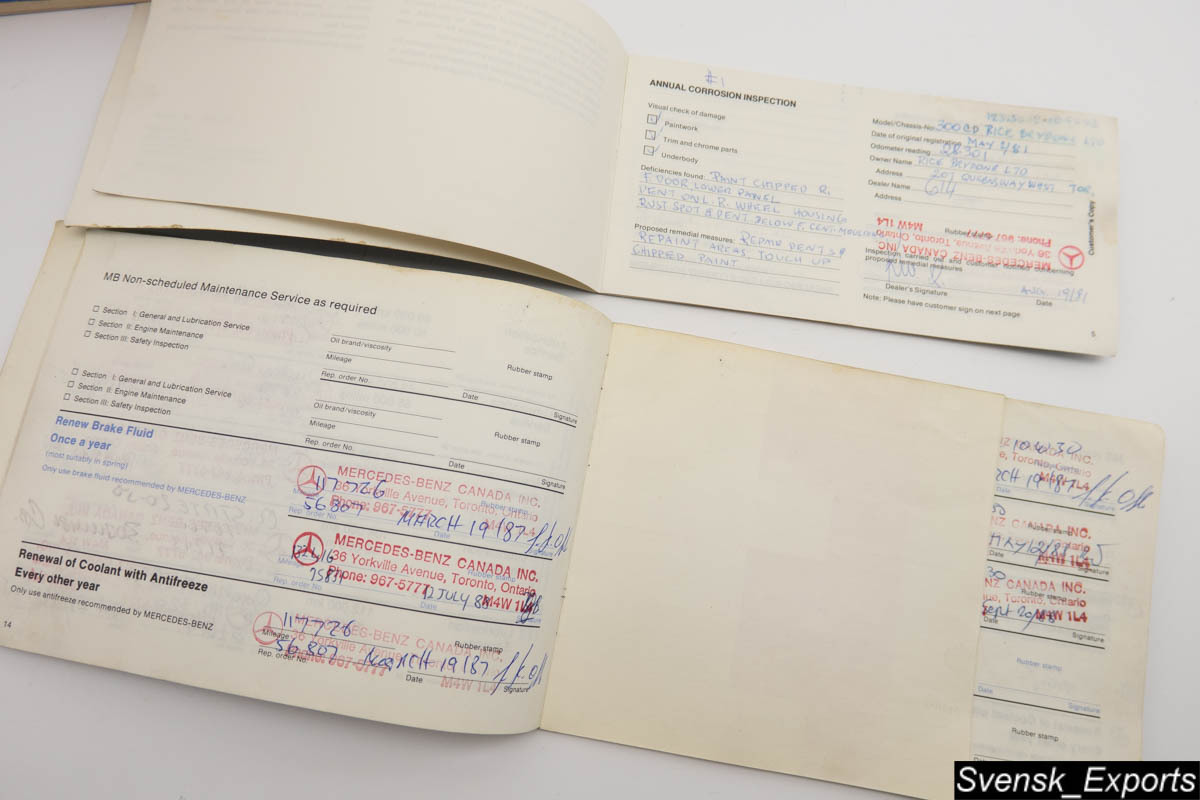 #1
ANNUAL CORROSION INSPECTION
Visual check of damage
Paintwork
Trim and chrome parts
Underbody
Deficiencies found: PAINT CHIPPED R.
F. DOOR LOWER PANEL
DENT ON L.R. WHEEL HOUSING
RUST SPOT & DENT BELOW F. CENT. MOULDING
Proposed remedial measures: REPAIR DENTS &
REPAINT AREAS, TOUCH UP
CHIPPED PAINT
Model/Chassis-No. 300CD RICE BEYDOUN LTD
Date of original registration MAY 8/81
Odometer reading 28301
Owner Name RICE BEYDONE LTD
Address 207 QUEENSWAY WEST TOR.
Dealer Name 614
Address
Rubber stamp
MERCEDES-BENZ CANADA INC.
36 Yorkville Avenue, Toronto, Ontario
Phone: 967-5777
M4W 1L4
Inspection carried out and customer notified concerning
proposed remedial measures
AUG 19/81
Dealer's Signature
Date
Note: Please have customer sign on next page
Customer's Copy
5
MB Non-scheduled Maintenance Service as required
Section I: General and Lubrication Service
Section II: Engine Maintenance
Section III: Safety Inspection
Oil brand/viscosity
Mileage
Rep. order No.
Rubber stamp
Date
Signature
Section I: General and Lubrication Service
Section II: Engine Maintenance
Section III: Safety Inspection
Oil brand/viscosity
Mileage
Rep. order No.
Rubber stamp
Date
Signature
Renew Brake Fluid
Once a year
(most suitably in spring)
Only use brake fluid recommended by MERCEDES-BENZ
MERCEDES-BENZ CANADA INC.
36 Yorkville Avenue, Toronto, Ontario
Phone: 967-5777
M4W 1L4
117726
56.807
Rep. order No.
MARCH 19/87
MERCEDES-BENZ CANADA INC.
36 Yorkville Avenue, Toronto, Ontario
Phone: 967-5777
M4W 1L4
132416
Rep. order No.
12 JULY 88
Date
Rubber stamp
Renewal of Coolant with Antifreeze
Every other year
Only use antifreeze recommended by MERCEDES-BENZ
MERCEDES-BENZ CANADA INC.
36 Yorkville Avenue, Toronto, Ontario
Phone: 967-5777
M4W 1L4
117726
Mileage
56.807
Rep. order No.
MARCH 19/87
Rubber stamp
Date
Signature
14
10w30
NZ CANADA INC.
nue, Toronto, Ontario
M4W 1L4
RCH 19/87
Date
NZ CANADA INC.
M4W 1L4
MAY 12/87
Date
Signature
30
NZ CANADA INC.
nue, Toronto, Ontario
M4W 1L4
Rubber stamp
Sept 20/88
Date
Signature
Rubber stamp
Date
Signature
Rubber stamp
Date
Svensk_Exports